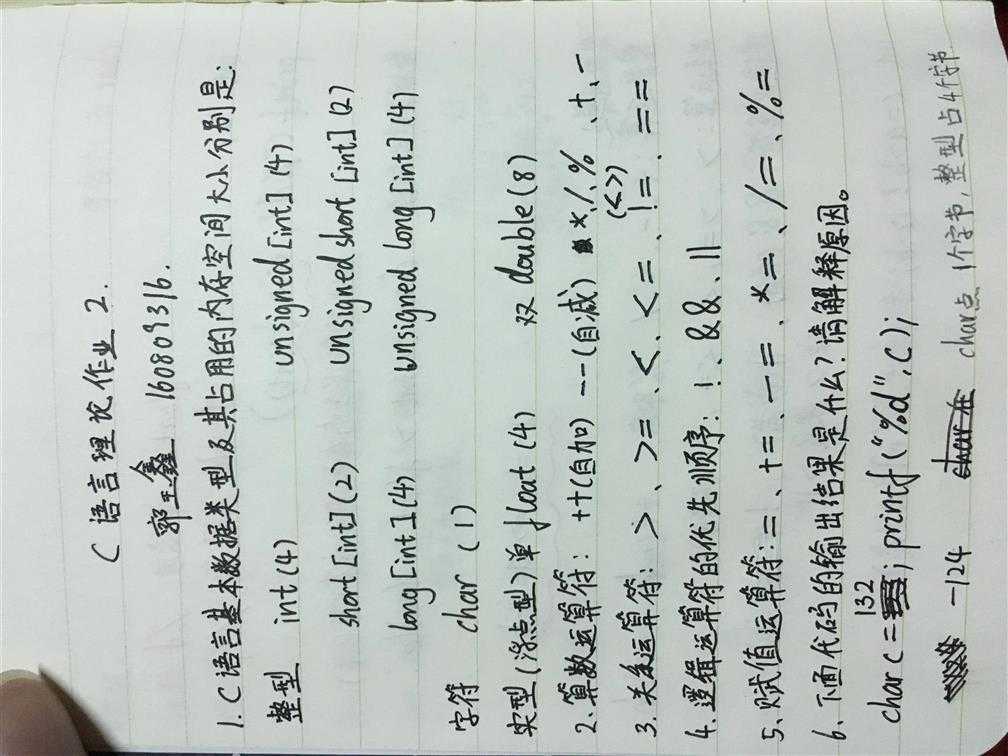 C语言理论作业2.
郭玉鑫 160809316.
1. C语言基本数据类型及其占用的内存空间大小分别是:
整型 int(4) unsigned [int] (4)
short [int] (2) unsigned short [int] (2)
long [int] (4) unsigned long [int] (4)
字符 char (1)
实型(浮点型) 单 float (4) 双 double (8)
2. 算数运算符: ++(自加) --(自减) *、/、% 、+、-
3. 关系运算符: >、>=、<、<=、(<>) !=、==
4. 逻辑运算符的优先顺序: !、&&、||
5. 赋值运算符: =、+=、-=、*=、/=、%=
6. 下面代码的输出结果是什么?请解释原因。
char c = 132; printf("%d", c);
-124 char占1个字节,整型占4个字节